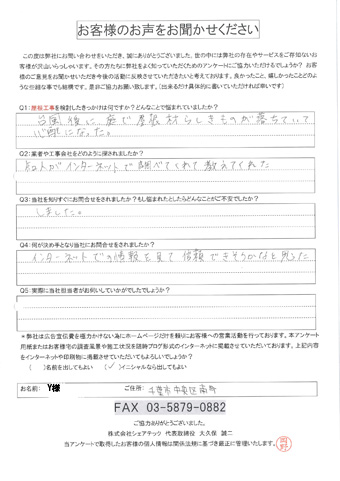 お客様のお声をお聞かせください
この度は弊社にお問い合わせをいただき、誠にありがとうございました。世の中には弊社の存在やサービスをご存知ないお
客様が沢山いらっしゃいます。その方たちに弊社をよく知っていただくためのアンケートにご協力いただけるでしょうか? お客
様のご意見をお聞かせいただき今後の活動に反映させていただきたいと考えております。良かったこと、嬉しかったことどのよ
うな些細な事でも結構です。是非ご協力お願い致します。(出来るだけ具体的に書いていただければ幸いです)
Q1:屋根工事を検討したきっかけは何ですか?どんなことで悩まれていましたか?
台風後に庭で屋根材らしきものが落ちていて
心配になった。
Q2:業者や工事会社をどのように探されましたか?
知人がインターネットで調べてくれて教えてくれた
Q3:当社を知りすぐにお問合せをされましたか?もし悩まれたとしたらどんなことがご不安でしたか?
しました。
Q4:何が決め手となり当社にお問合せをされましたか?
インターネットでの情報を見て信頼できそうかなと思った
Q5:実際に当社担当者がお伺いしていかがでしたでしょうか?
*弊社は広告宣伝費を極力かけない為にホームページだけを頼りにお客様への営業活動を行っております。本アンケート
用紙またはお客様宅の調査風景や施工状況を随時ブログ形式のインターネットに掲載させていただいております。上記内容
をインターネットや印刷物に掲載させていただいてもよろしいでしょうか?
( )名前を出してもよい (✓)イニシャルなら出してもよい
お名前: Y様 ご住所: 千葉市中央区南町
FAX 03-5879-0882
ご協力ありがとうございました。
株式会社シェアテック 代表取締役 大久保 誠二
当アンケートで取得したお客様の個人情報は関係法規に基づき厳正に管理いたします。